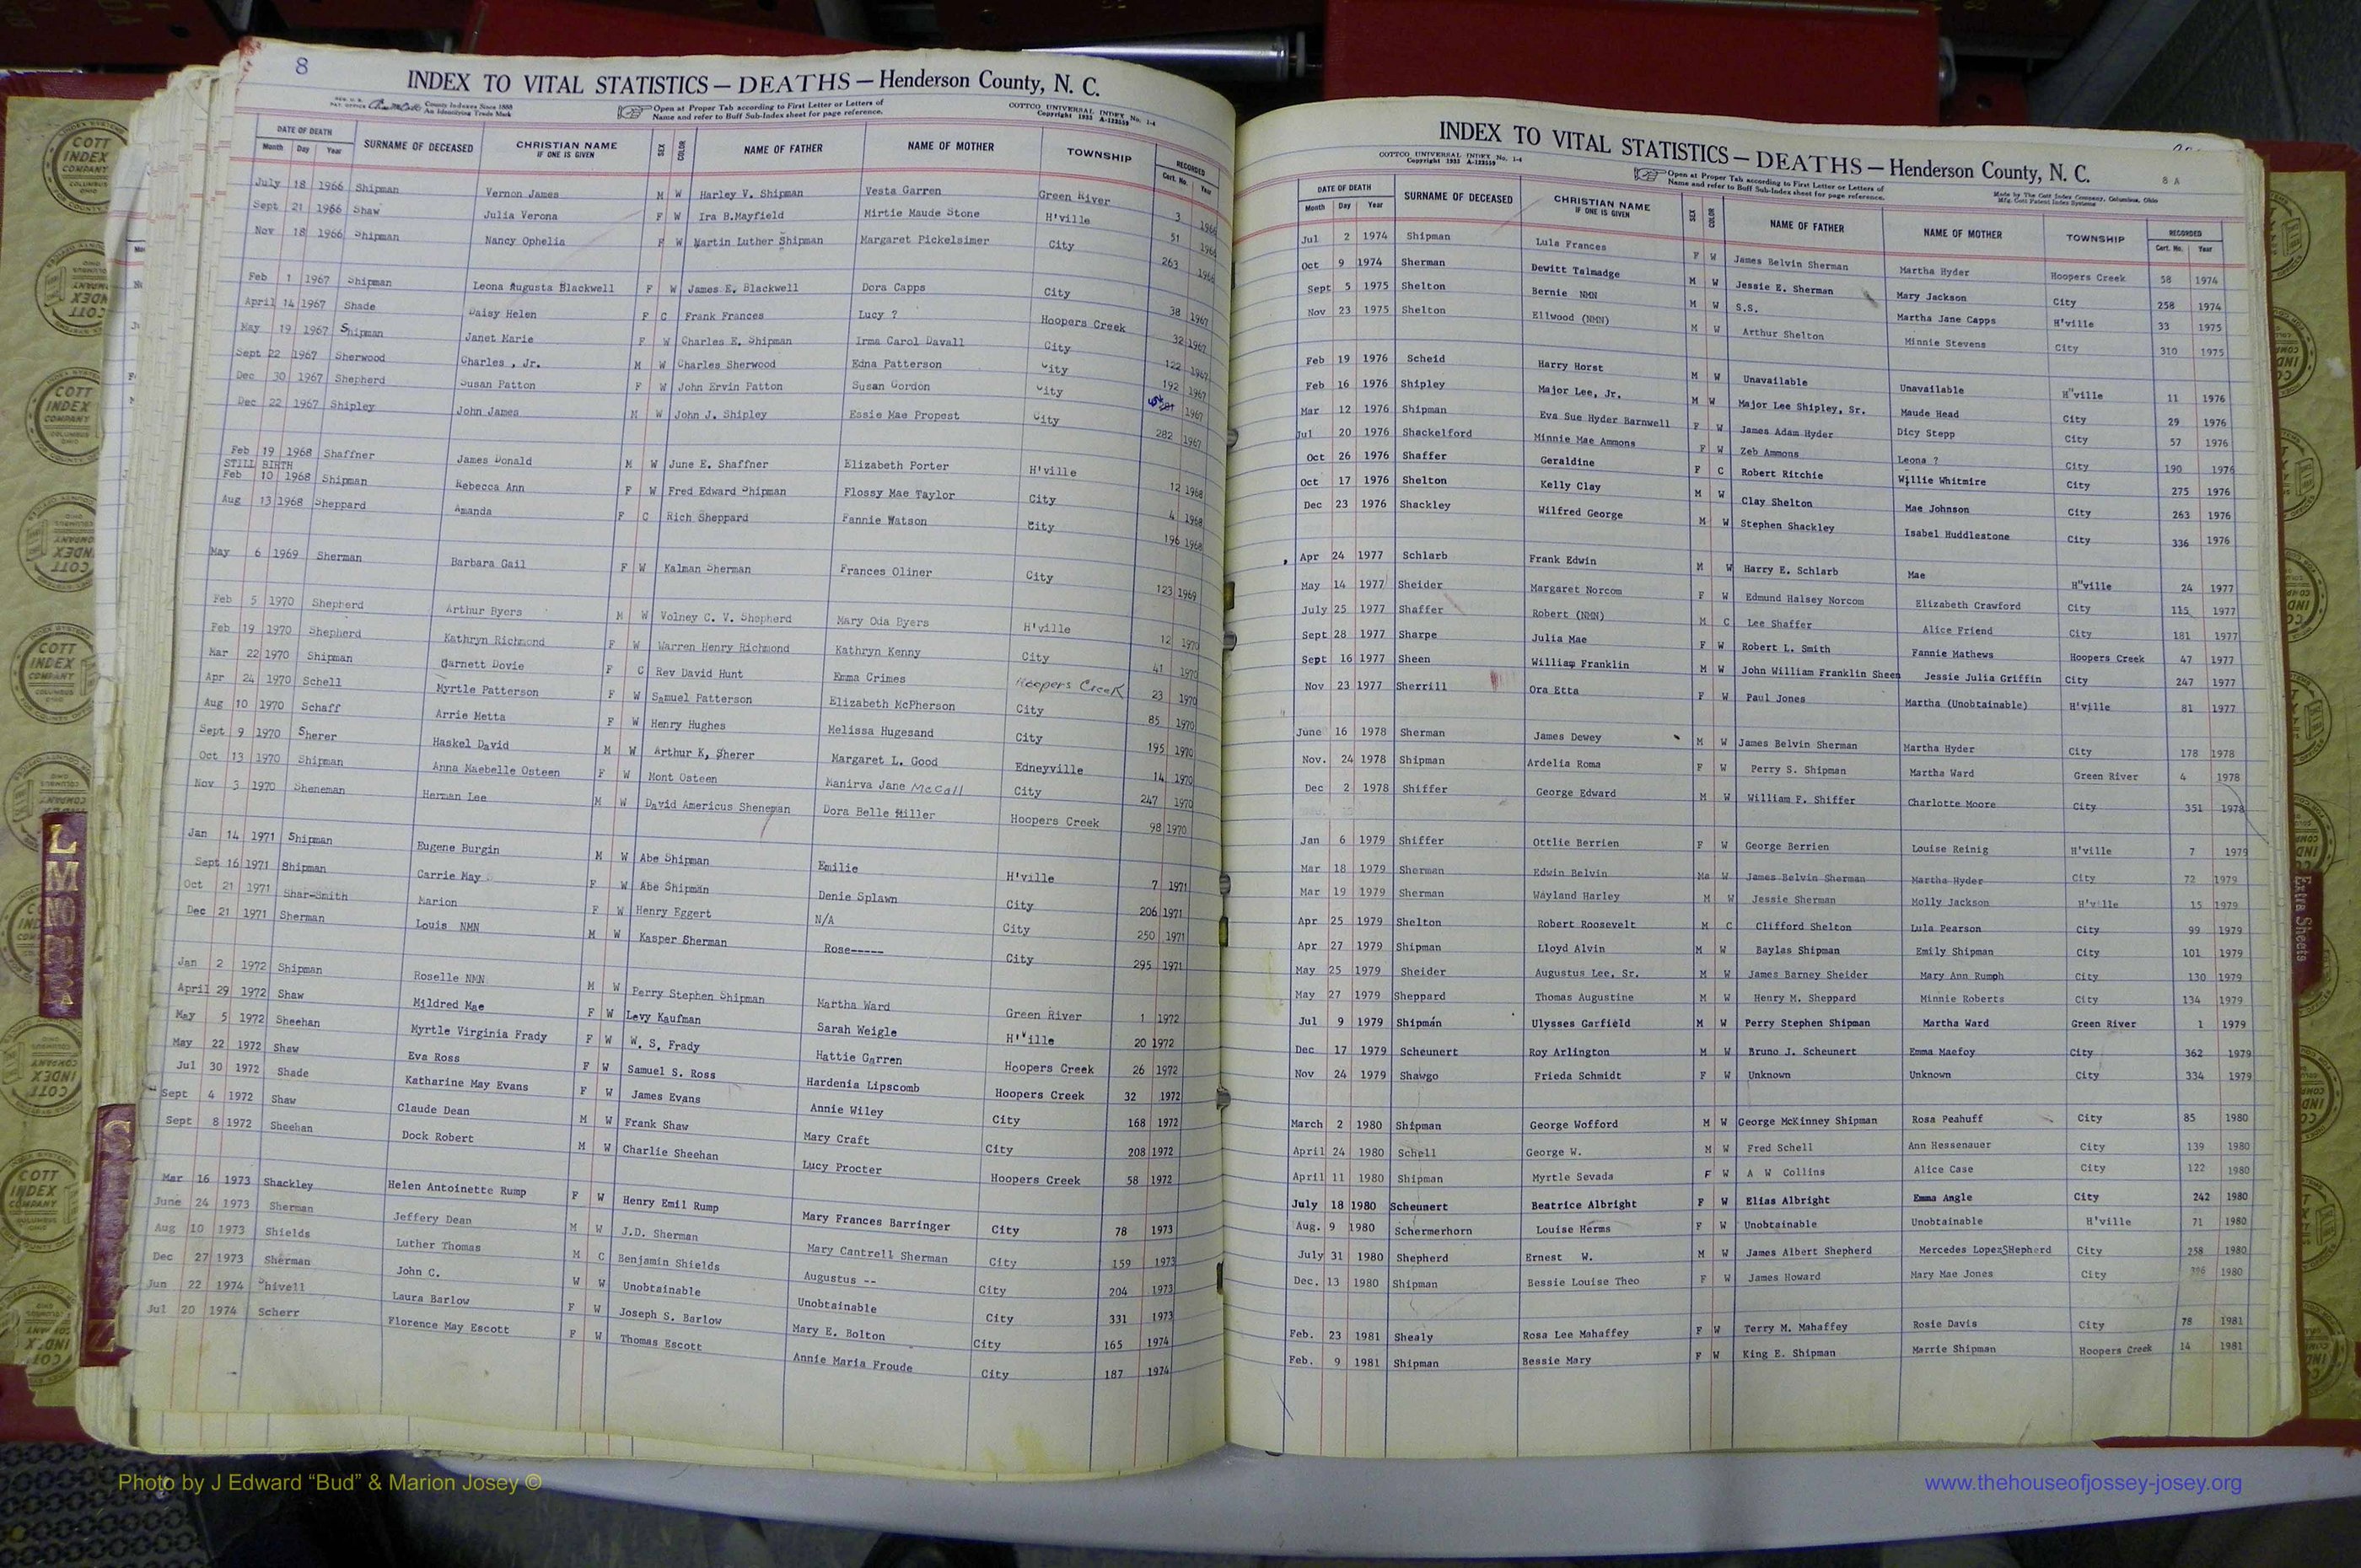 8
INDEX TO VITAL STATISTICS — DEATHS — Henderson County, N. C.
County Indexes Since 1888
An Identifying Trade Mark
Open at Proper Tab according to First Letter or Letters of
Name and refer to Buff Sub-Index sheet for page reference.
COTTCO UNIVERSAL INDEX No. 1-4
Copyright 1933 A-123559
DATE OF DEATH SURNAME OF DECEASED CHRISTIAN NAME IF ONE IS GIVEN SEX COLOR NAME OF FATHER NAME OF MOTHER TOWNSHIP RECORDED
Month Day Year Cert. No. Year
July 18 1966 Shipman Vernon James M W Harley V. Shipman Vesta Garren Green River 3 1966
Sept 21 1966 Shaw Julia Verona F W Ira B.Mayfield Mirtie Maude Stone H'ville 51 1966
Nov 18 1966 Shipman Nancy Ophelia F W Martin Luther Shipman Margaret Pickelsimer City 263 1966
Feb 1 1967 Shipman Leona Augusta Blackwell F W James E. Blackwell Dora Capps City 38 1967
April 14 1967 Shade Daisy Helen F C Frank Frances Lucy ? Hoopers Creek 32 1967
May 19 1967 Shipman Janet Marie F W Charles E. Shipman Irma Carol Davall City 122 1967
Sept 22 1967 Sherwood Charles , Jr. M W Charles Sherwood Edna Patterson City 192 1967
Dec 30 1967 Shepherd Susan Patton F W John Ervin Patton Susan Gordon City 1967
Dec 22 1967 Shipley John James M W John J. Shipley Essie Mae Propest City 282 1967
Feb 19 1968 Shaffner James Donald M W June E. Shaffner Elizabeth Porter H'ville 12 1968
STILL BIRTH
Feb 10 1968 Shipman Rebecca Ann F W Fred Edward Shipman Flossy Mae Taylor City 4 1968
Aug 13 1968 Sheppard Amanda F C Rich Sheppard Fannie Watson City 196 1968
May 6 1969 Sherman Barbara Gail F W Kalman Sherman Frances Oliner City 123 1969
Feb 5 1970 Shepherd Arthur Byers M W Volney C. V. Shepherd Mary Oda Byers H'ville 12 1970
Feb 19 1970 Shepherd Kathryn Richmond F W Warren Henry Richmond Kathryn Kenny City 41 1970
Mar 22 1970 Shipman Garnett Dovie F C Rev David Hunt Emma Crimes Hoopers Creek 23 1970
Apr 24 1970 Schell Myrtle Patterson F W Samuel Patterson Elizabeth McPherson City 85 1970
Aug 10 1970 Schaff Arrie Metta F W Henry Hughes Melissa Hugesand City 195 1970
Sept 9 1970 Sherer Haskel David M W Arthur K, Sherer Margaret L. Good Edneyville 14 1970
Oct 13 1970 Shipman Anna Maebelle Osteen F W Mont Osteen Manirva Jane McCall City 247 1970
Nov 3 1970 Sheneman Herman Lee M W David Americus Sheneman Dora Belle Miller Hoopers Creek 98 1970
Jan 14 1971 Shipman Eugene Burgin M W Abe Shipman Emilie H'ville 7 1971
Sept 16 1971 Shipman Carrie May F W Abe Shipman Denie Splawn City 206 1971
Oct 21 1971 Shar-Smith Marion F W Henry Eggert N/A City 250 1971
Dec 21 1971 Sherman Louis NMN M W Kasper Sherman Rose----- City 295 1971
Jan 2 1972 Shipman Roselle NMN M W Perry Stephen Shipman Martha Ward Green River 1 1972
April 29 1972 Shaw Mildred Mae F W Levy Kaufman Sarah Weigle H'ville 20 1972
May 5 1972 Sheehan Myrtle Virginia Frady F W W. S. Frady Hattie Garren Hoopers Creek 26 1972
May 22 1972 Shaw Eva Ross F W Samuel S. Ross Hardenia Lipscomb Hoopers Creek 32 1972
Jul 30 1972 Shade Katharine May Evans F W James Evans Annie Wiley City 168 1972
Sept 4 1972 Shaw Claude Dean M W Frank Shaw Mary Craft City 208 1972
Sept 8 1972 Sheehan Dock Robert M W Charlie Sheehan Lucy Procter Hoopers Creek 58 1972
Mar 16 1973 Shackley Helen Antoinette Rump F W Henry Emil Rump Mary Frances Barringer City 78 1973
June 24 1973 Sherman Jeffery Dean M W J.D. Sherman Mary Cantrell Sherman City 159 1973
Aug 10 1973 Shields Luther Thomas M C Benjamin Shields Augustus -- City 204 1973
Dec 27 1973 Sherman John C. W W Unobtainable Unobtainable City 331 1973
Jun 22 1974 Shivell Laura Barlow F W Joseph S. Barlow Mary E. Bolton City 165 1974
Jul 20 1974 Scherr Florence May Escott F W Thomas Escott Annie Maria Froude City 187 1974
INDEX TO VITAL STATISTICS — DEATHS — Henderson County, N. C.
8 A
COTTCO UNIVERSAL INDEX No. 1-4
Copyright 1933 A-123559
Open at Proper Tab according to First Letter or Letters of
Name and refer to Buff Sub-Index sheet for page reference.
Made by The Cott Index Company, Columbus, Ohio
Mfg. Cott Patent Index Systems
DATE OF DEATH SURNAME OF DECEASED CHRISTIAN NAME IF ONE IS GIVEN SEX COLOR NAME OF FATHER NAME OF MOTHER TOWNSHIP RECORDED
Month Day Year Cert. No. Year
Jul 2 1974 Shipman Lula Frances F W James Belvin Sherman Martha Hyder Hoopers Creek 58 1974
Oct 9 1974 Sherman Dewitt Talmadge M W Jessie E. Sherman Mary Jackson City 258 1974
Sept 5 1975 Shelton Bernie NMN M W S.S. Martha Jane Capps H'ville 33 1975
Nov 23 1975 Shelton Ellwood (NMN) M W Arthur Shelton Minnie Stevens City 310 1975
Feb 19 1976 Scheid Harry Horst M W Unavailable Unavailable H"ville 11 1976
Feb 16 1976 Shipley Major Lee, Jr. M W Major Lee Shipley, Sr. Maude Head City 29 1976
Mar 12 1976 Shipman Eva Sue Hyder Barnwell F W James Adam Hyder Dicy Stepp City 57 1976
Jul 20 1976 Shackelford Minnie Mae Ammons F W Zeb Ammons Leona ? City 190 1976
Oct 26 1976 Shaffer Geraldine F C Robert Ritchie Willie Whitmire City 275 1976
Oct 17 1976 Shelton Kelly Clay M W Clay Shelton Mae Johnson City 263 1976
Dec 23 1976 Shackley Wilfred George M W Stephen Shackley Isabel Huddlestone City 336 1976
Apr 24 1977 Schlarb Frank Edwin M W Harry E. Schlarb Mae H"ville 24 1977
May 14 1977 Sheider Margaret Norcom F W Edmund Halsey Norcom Elizabeth Crawford City 115 1977
July 25 1977 Shaffer Robert (NMN) M C Lee Shaffer Alice Friend City 181 1977
Sept 28 1977 Sharpe Julia Mae F W Robert L. Smith Fannie Mathews Hoopers Creek 47 1977
Sept 16 1977 Sheen William Franklin M W John William Franklin Sheen Jessie Julia Griffin City 247 1977
Nov 23 1977 Sherrill Ora Etta F W Paul Jones Martha (Unobtainable) H'ville 81 1977
June 16 1978 Sherman James Dewey M W James Belvin Sherman Martha Hyder City 178 1978
Nov. 24 1978 Shipman Ardelia Roma F W Perry S. Shipman Martha Ward Green River 4 1978
Dec 2 1978 Shiffer George Edward M W William F. Shiffer Charlotte Moore City 351 1978
Jan 6 1979 Shiffer Ottlie Berrien F W George Berrien Louise Reinig H'ville 7 1979
Mar 18 1979 Sherman Edwin Belvin Ma W James Belvin Sherman Martha Hyder City 72 1979
Mar 19 1979 Sherman Wayland Harley M W Jessie Sherman Molly Jackson H'ville 15 1979
Apr 25 1979 Shelton Robert Roosevelt M C Clifford Shelton Lula Pearson City 99 1979
Apr 27 1979 Shipman Lloyd Alvin M W Baylas Shipman Emily Shipman City 101 1979
May 25 1979 Sheider Augustus Lee, Sr. M W James Barney Sheider Mary Ann Rumph City 130 1979
May 27 1979 Sheppard Thomas Augustine M W Henry M. Sheppard Minnie Roberts City 134 1979
Jul 9 1979 Shipman Ulysses Garfield M W Perry Stephen Shipman Martha Ward Green River 1 1979
Dec 17 1979 Scheunert Roy Arlington M W Bruno J. Scheunert Emma Maefoy City 362 1979
Nov 24 1979 Shawgo Frieda Schmidt F W Unknown Unknown City 334 1979
March 2 1980 Shipman George Wofford M W George McKinney Shipman Rosa Peahuff City 85 1980
April 24 1980 Schell George W. M W Fred Schell Ann Hessenauer City 139 1980
April 11 1980 Shipman Myrtle Sevada F W A W Collins Alice Case City 122 1980
July 18 1980 Scheunert Beatrice Albright F W Elias Albright Emma Angle City 242 1980
Aug. 9 1980 Schermerhorn Louise Herms F W Unobtainable Unobtainable H'ville 71 1980
July 31 1980 Shepherd Ernest W. M W James Albert Shepherd Mercedes LopezSHepherd City 258 1980
Dec. 13 1980 Shipman Bessie Louise Theo F W James Howard Mary Mae Jones City 1980
Feb. 23 1981 Shealy Rosa Lee Mahaffey F W Terry M. Mahaffey Rosie Davis City 78 1981
Feb. 9 1981 Shipman Bessie Mary F W King E. Shipman Marrie Shipman Hoopers Creek 14 1981
Extra Sheets
COTT INDEX COMPANY COLUMBUS OHIO
Photo by J Edward “Bud” & Marion Josey ©
www.thehouseofjossey-josey.org